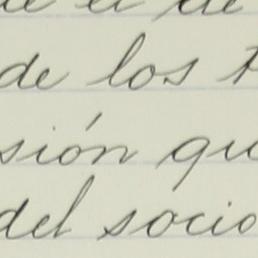 de los
sión qu
del socio